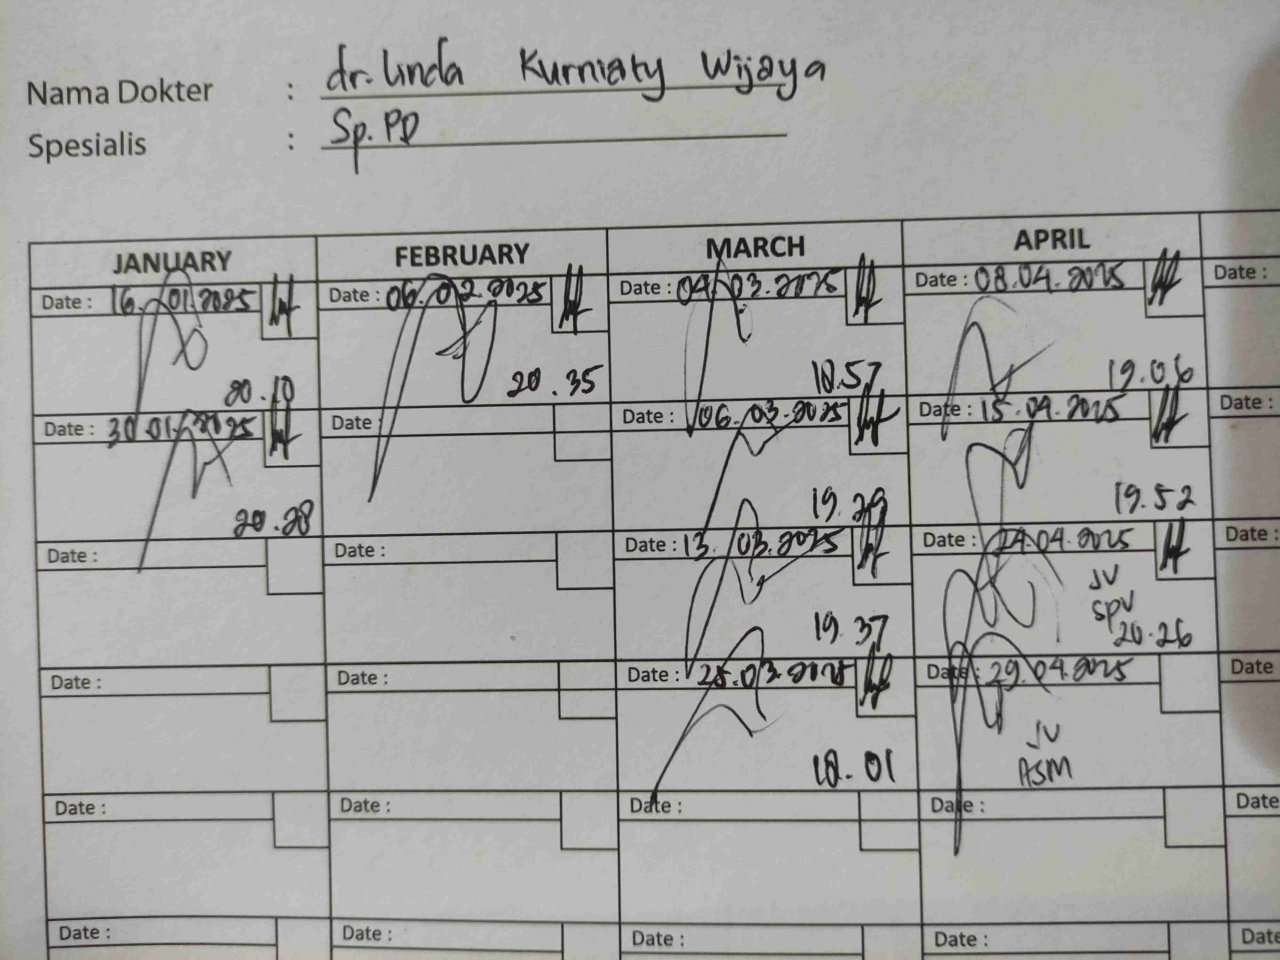 Nama Dokter : dr. Linda Kurniaty Wijaya
Spesialis : Sp.PD
JANUARY FEBRUARY MARCH APRIL
Date : 16.01.2025 Date : 06.02.2025 Date : 04.03.2025 Date : 08.04.2025 Date :
20.10 20.35 18.57 19.06
Date : 30.01.2025 Date : 06.03.2025 Date : 15.04.2025 Date :
20.28 19.29 19.52
Date : Date : Date : 13.03.2025 Date : 24.04.2025 Date :
JV
SPV
19.37 20.26
Date : Date : Date : 25.03.2025 Date : 29.04.2025 Date
JV
18.01 ASM
Date : Date : Date : Date : Date
Date : Date : Date : Date : Date